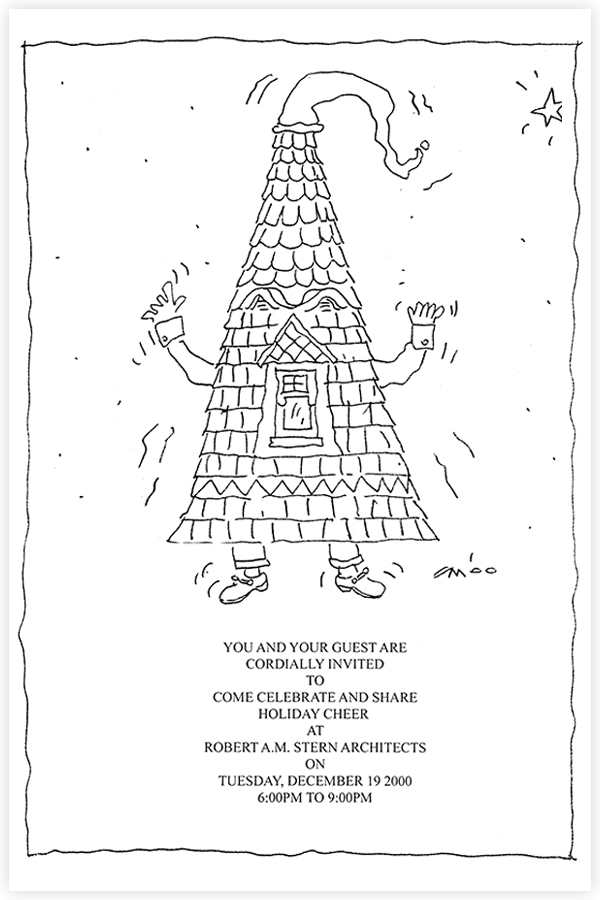 YOU AND YOUR GUEST ARE
CORDIALLY INVITED
TO
COME CELEBRATE AND SHARE
HOLIDAY CHEER
AT
ROBERT A.M. STERN ARCHITECTS
ON
TUESDAY, DECEMBER 19 2000
6:00PM TO 9:00PM